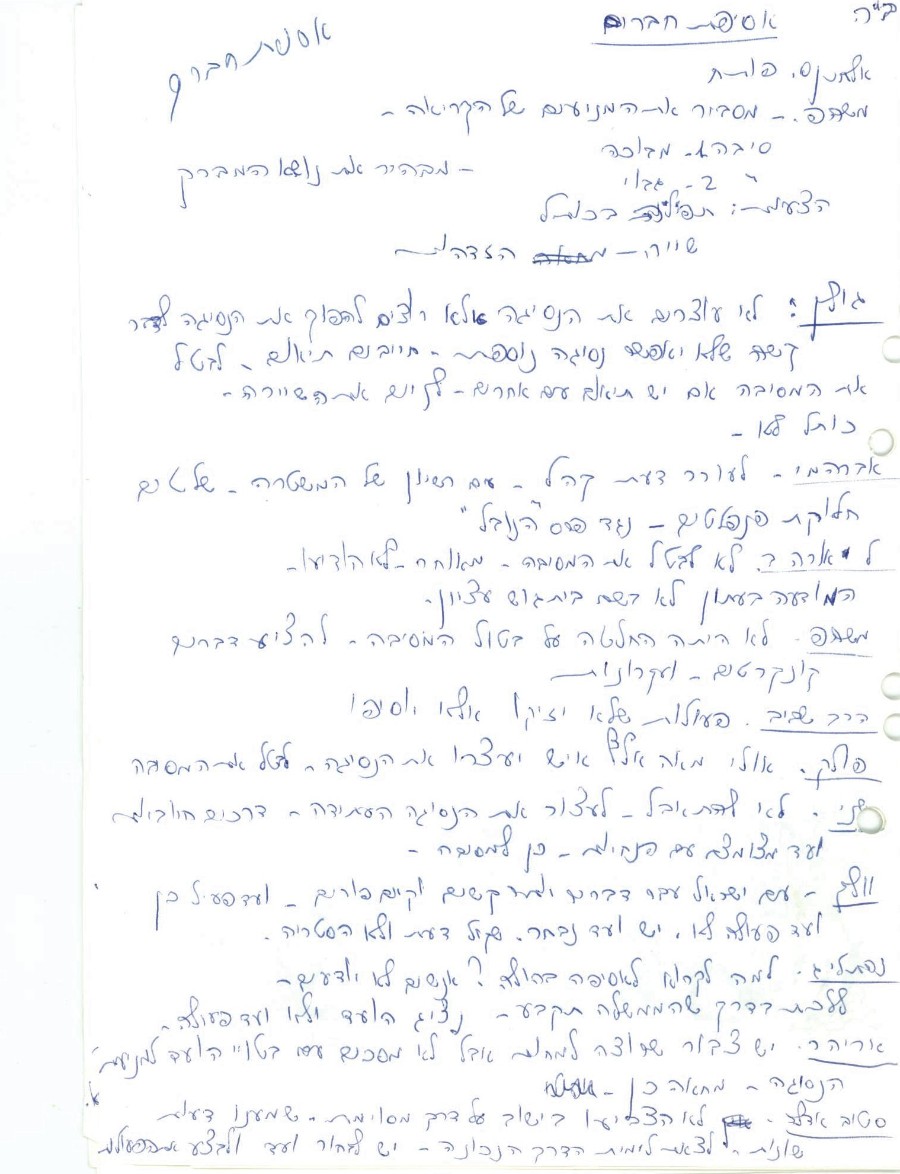 ב"ה
אסיפת חברים
אסיפת חברים
פותח
מסביר את המניעים של הקריאה -
סיבה 1 - מבוכה
" 2 - גבוי - מבהיר את נושא המברק
הצעות: תפילה בכותל
שיירה - הזדהות
גולן: לא עוצרים את הנסיגה אלא רוצים להפוך את הנסיגה לדבר
קשה שלא יאפשר נסיגה נוספת - חייבים תיאום - לבטל
את המסיבה אם יש תיאום עם אחרים - לקיים את השיירה -
כותל לא -
אברהמי - לעורר דעת קהל - עם רשיון של המשטרה - שלטים
חלוקת פמפלטים - נגד פרס "הנובל"
ארה ב. לא לבטל את המסיבה - מאוחר - לא הודיעו -
המודעה בעתון לא בשם בית גוש עציון -
לא היתה החלטה על בטול המסיבה - להציע דברים
קונקרטים - ועקרונות
הרב שביב. פעולות שלא יזיקו אלא יוסיפו
פולק. אולי מאה אלף איש יעצרו את הנסיגה - לבטל את המסיבה
שני. לא להתאבל - לעצור את הנסיגה העתידה - דרכים חיוביות
ועד מצומצם עם הנחיות - כן למסיבה -
וולף - עם ישראל עבר דברים יותר קשים וקיים פורים - ועד פעיל כן
ועד פעולה לא. יש ועד נבחר. שקול דעת ולא הסטריה.
נפתלי ג. למה לקרוא לאסיפה בהולה? אנשים לא יודעים -
ללכת בדרך שהממשלה תקבע - נציג הועד ולא ועד פעולה -
אוריה ר. יש צבור שרוצה למחות אבל לא מסכים עם בטויי הועד למניעת
הנסיגה - מחאה כן -
סטיב אדלר - לא הצביעו בישוב על דרך מסוימת - שמענו דעות
שונות - לצאת לימית הדרך הנכונה - יש לבחור ועד ולבצע את הפעולות